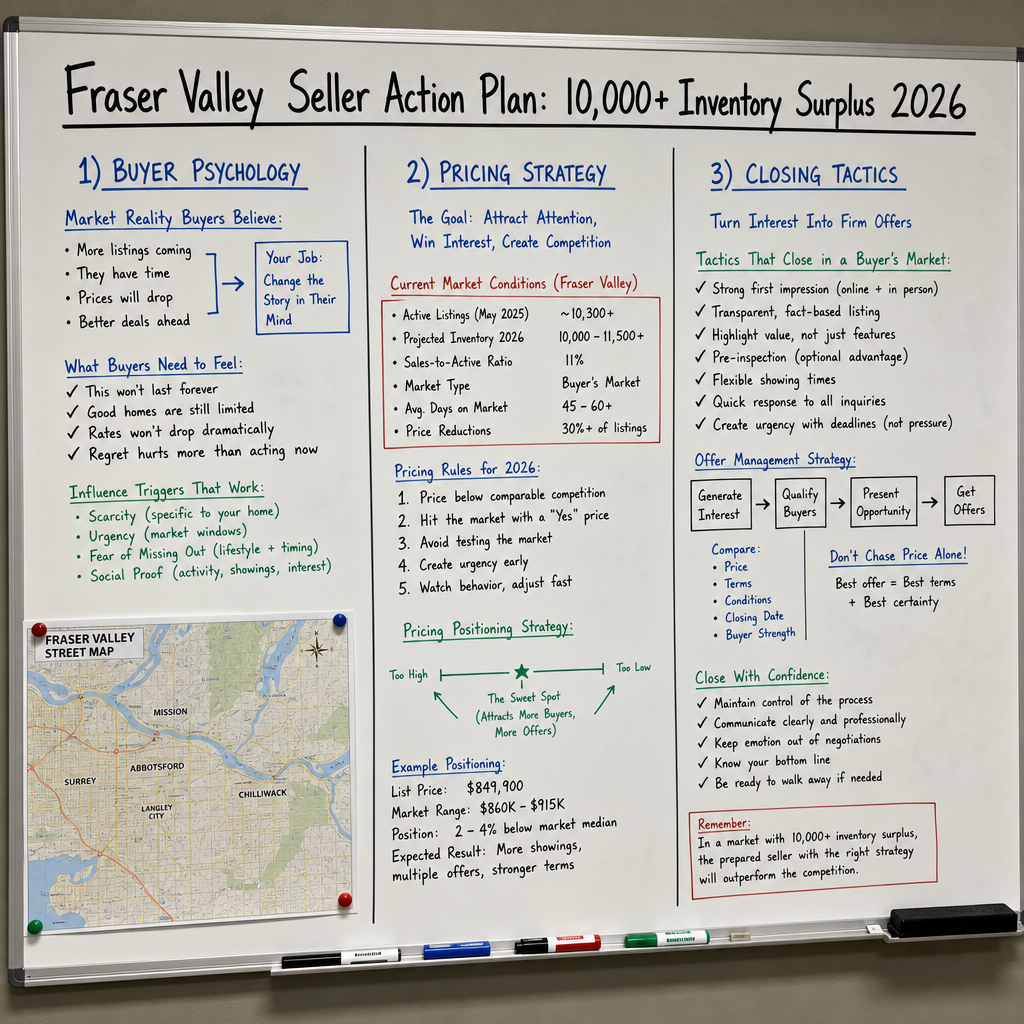 Fraser Valley Seller Action Plan: 10,000+ Inventory Surplus 2026
1) BUYER PSYCHOLOGY
Market Reality Buyers Believe:
• More listings coming
• They have time
• Prices will drop
• Better deals ahead
Your Job:
Change the
Story in Their
Mind
What Buyers Need to Feel:
✓ This won't last forever
✓ Good homes are still limited
✓ Rates won't drop dramatically
✓ Regret hurts more than acting now
Influence Triggers That Work:
• Scarcity (specific to your home)
• Urgency (market windows)
• Fear of Missing Out (lifestyle + timing)
• Social Proof (activity, showings, interest)
FRASER VALLEY
STREET MAP
N
MISSION
ABBOTSFORD
SURREY
CHILLIWACK
LANGLEY
CITY
2) PRICING STRATEGY
The Goal: Attract Attention,
Win Interest, Create Competition
Current Market Conditions (Fraser Valley)
• Active Listings (May 2025) ~10,300+
• Projected Inventory 2026 10,000 – 11,500+
• Sales-to-Active Ratio 11%
• Market Type Buyer's Market
• Avg. Days on Market 45 – 60+
• Price Reductions 30%+ of listings
Pricing Rules for 2026:
1. Price below comparable competition
2. Hit the market with a "Yes" price
3. Avoid testing the market
4. Create urgency early
5. Watch behavior, adjust fast
Pricing Positioning Strategy:
Too High
Too Low
The Sweet Spot
(Attracts More Buyers,
More Offers)
Example Positioning:
List Price: $849,900
Market Range: $860K – $915K
Position: 2 – 4% below market median
Expected Result: More showings,
multiple offers, stronger terms
3) CLOSING TACTICS
Turn Interest Into Firm Offers
Tactics That Close in a Buyer's Market:
✓ Strong first impression (online + in person)
✓ Transparent, fact-based listing
✓ Highlight value, not just features
✓ Pre-inspection (optional advantage)
✓ Flexible showing times
✓ Quick response to all inquiries
✓ Create urgency with deadlines (not pressure)
Offer Management Strategy:
Generate
Interest
Qualify
Buyers
Present
Opportunity
Get
Offers
Compare:
• Price
• Terms
• Conditions
• Closing Date
• Buyer Strength
Don't Chase Price Alone!
Best offer = Best terms
+ Best certainty
Close With Confidence:
✓ Maintain control of the process
✓ Communicate clearly and professionally
✓ Keep emotion out of negotiations
✓ Know your bottom line
✓ Be ready to walk away if needed
Remember:
In a market with 10,000+ inventory surplus,
the prepared seller with the right strategy
will outperform the competition.